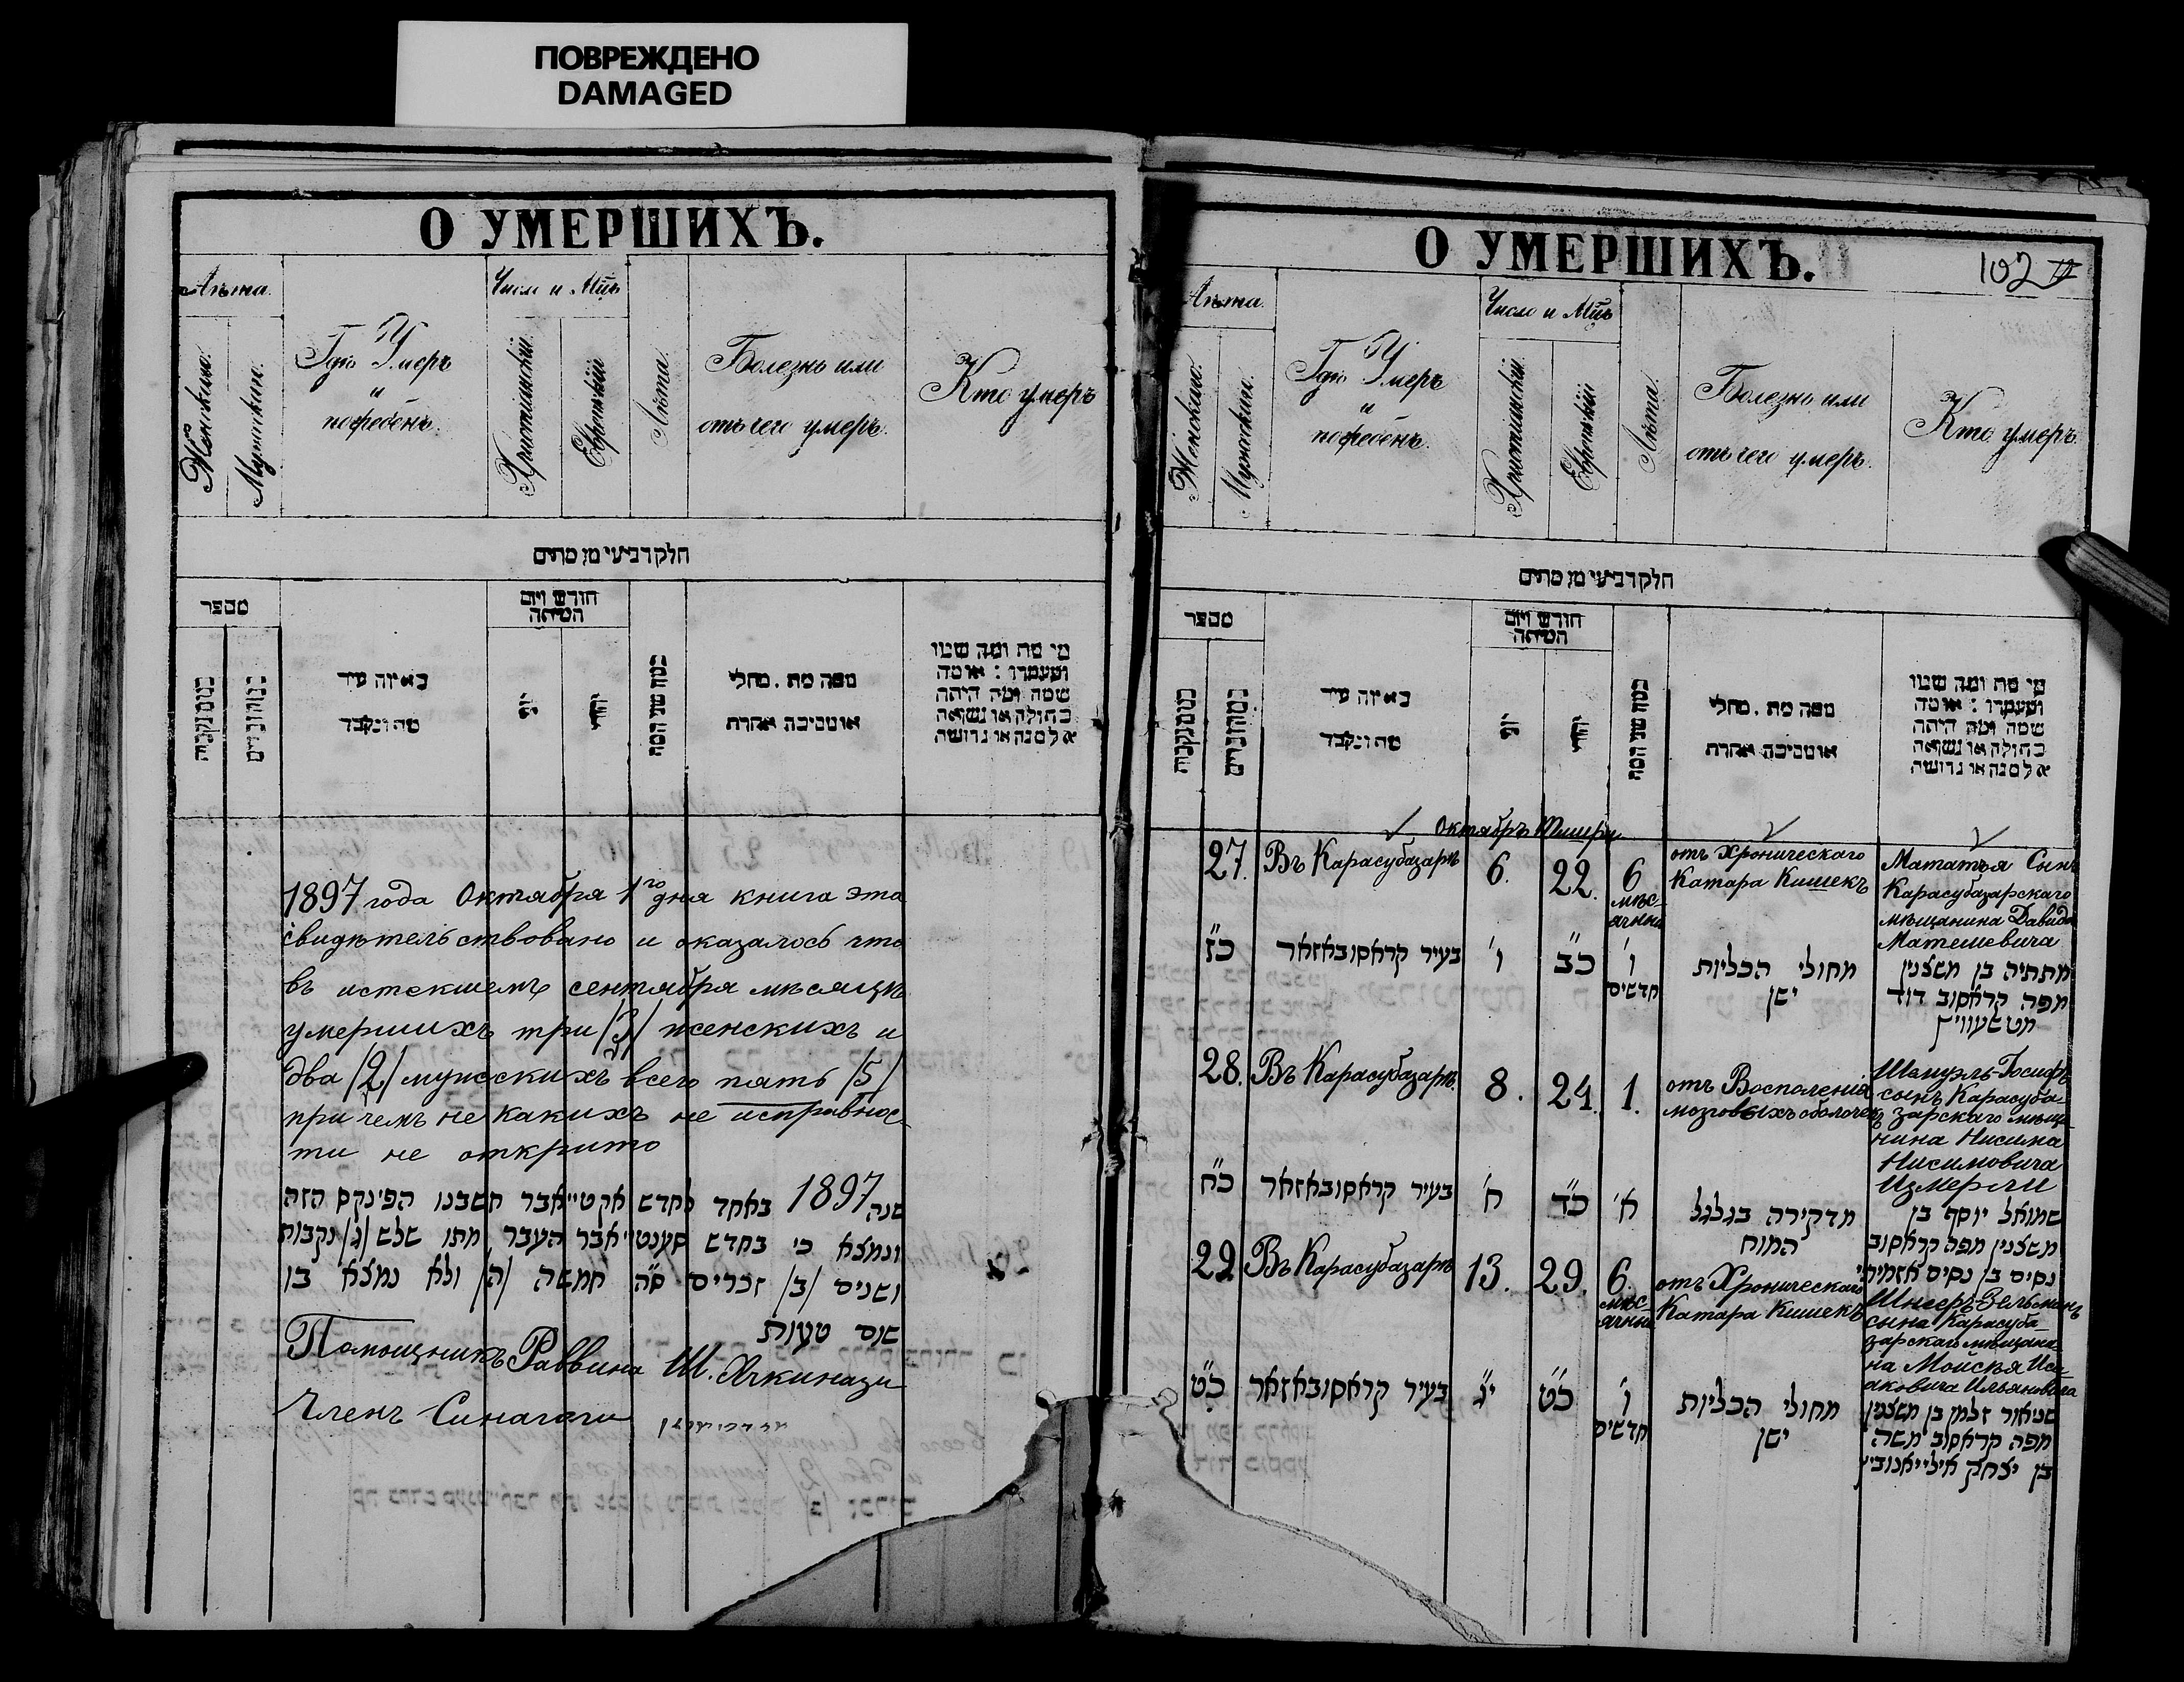 ПОВРЕЖДЕНО
DAMAGED
О УМЕРШИХЪ.
Лѣта.
Женскихъ.
Мужскихъ.
Гдѣ Умеръ
и
погребенъ.
Число и Мцъ
Христіанскій.
Еврейскій
Лѣта.
Болезнь или
отъ чего умеръ.
Кто умеръ
חלק רביעי מן מתים
מספר
חודש ויום
המיתה
באיזה עיר
מת ונקבר
ממה מת . מחלי
או מסיבה אחרת
מי מת ומה שמו
ומעמדו : או מה
שמה ומה היתה
בתולה או נשואה
אלמנה או גרושה
1897 года Октября 1го дня книга эта
свидѣтельствовано и оказалось что
въ истекшемъ сентября мѣсяцѣ
умершихъ три /3/ женскихъ и
два /2/ мужскихъ всего пять /5/
при чемъ не какихъ не исправнос-
ти не открыто
שנה 1897 באחד לחדש אקטייאבר חשבנו הפינקס הזה
ונמצא כי בחדש סענטייאבר העבר מתו שלש /ג/ נקבות
ושנים /ב/ זכרים ס״ה חמשה /ה/ ולא נמצא בו
שום טעות
Помощникъ Раввина Ш. Ачкинази
Членъ Синагоги
О УМЕРШИХЪ.
102
Лѣта.
Женскихъ.
Мужскихъ.
Гдѣ Умеръ
и
погребенъ.
Число и Мцъ
Христіанскій.
Еврейскій
Лѣта.
Болезнь или
отъ чего умеръ.
Кто умеръ.
חלק רביעי מן מתים
מספר
חודש ויום
המיתה
באיזה עיר
מת ונקבר
ממה מת . מחלי
או מסיבה אחרת
מי מת ומה שמו
ומעמדו : או מה
שמה ומה היתה
בתולה או נשואה
אלמנה או גרושה
Октябрь Тишри
27. Въ Карасубазарѣ 6. 22. 6
мѣс-
ячный
отъ Хроническаго
Катара Кишекъ
Мататья Сынъ
Карасубазарскаго
мѣщанина Давида
Матешевича
כ״ז בעיר קראסובאזאר ו׳ כ״ב ו׳
חדשים
מחולי הכליות
ישן
מתתיה בן משצנין
מפה קראסוב דוד
מטשעוויץ
28. Въ Карасубазарѣ. 8. 24. 1.
отъ Воспаленія
мозговыхъ оболочекъ
Шемуэль-Іосифъ
сынъ Карасуба-
зарскаго мѣща-
нина Нисима
Нисимовича
Измерли
כ״ח בעיר קראסובאזאר ח׳ כ״ד א׳
מדקירה בגלגל
המוח
שמואל יוסף בן
משצנין מפה קראסוב
נסים בן נסים אזמירלי
29. Въ Карасубазарѣ 13. 29. 6.
мѣс-
ячный
отъ Хроническаго
Катара Кишекъ
Шнееръ-Зельманъ
сына Карасуба-
зарскаго мѣщани-
на Моисѣя Иса-
аковича Ильяновича
כ״ט בעיר קראסובאזאר י״ג כ״ט ו׳
חדשים
מחולי הכליות
ישן
שניאור זלמן בן משצנין
מפה קראסוב משה
בן יצחק איליאנוביץ